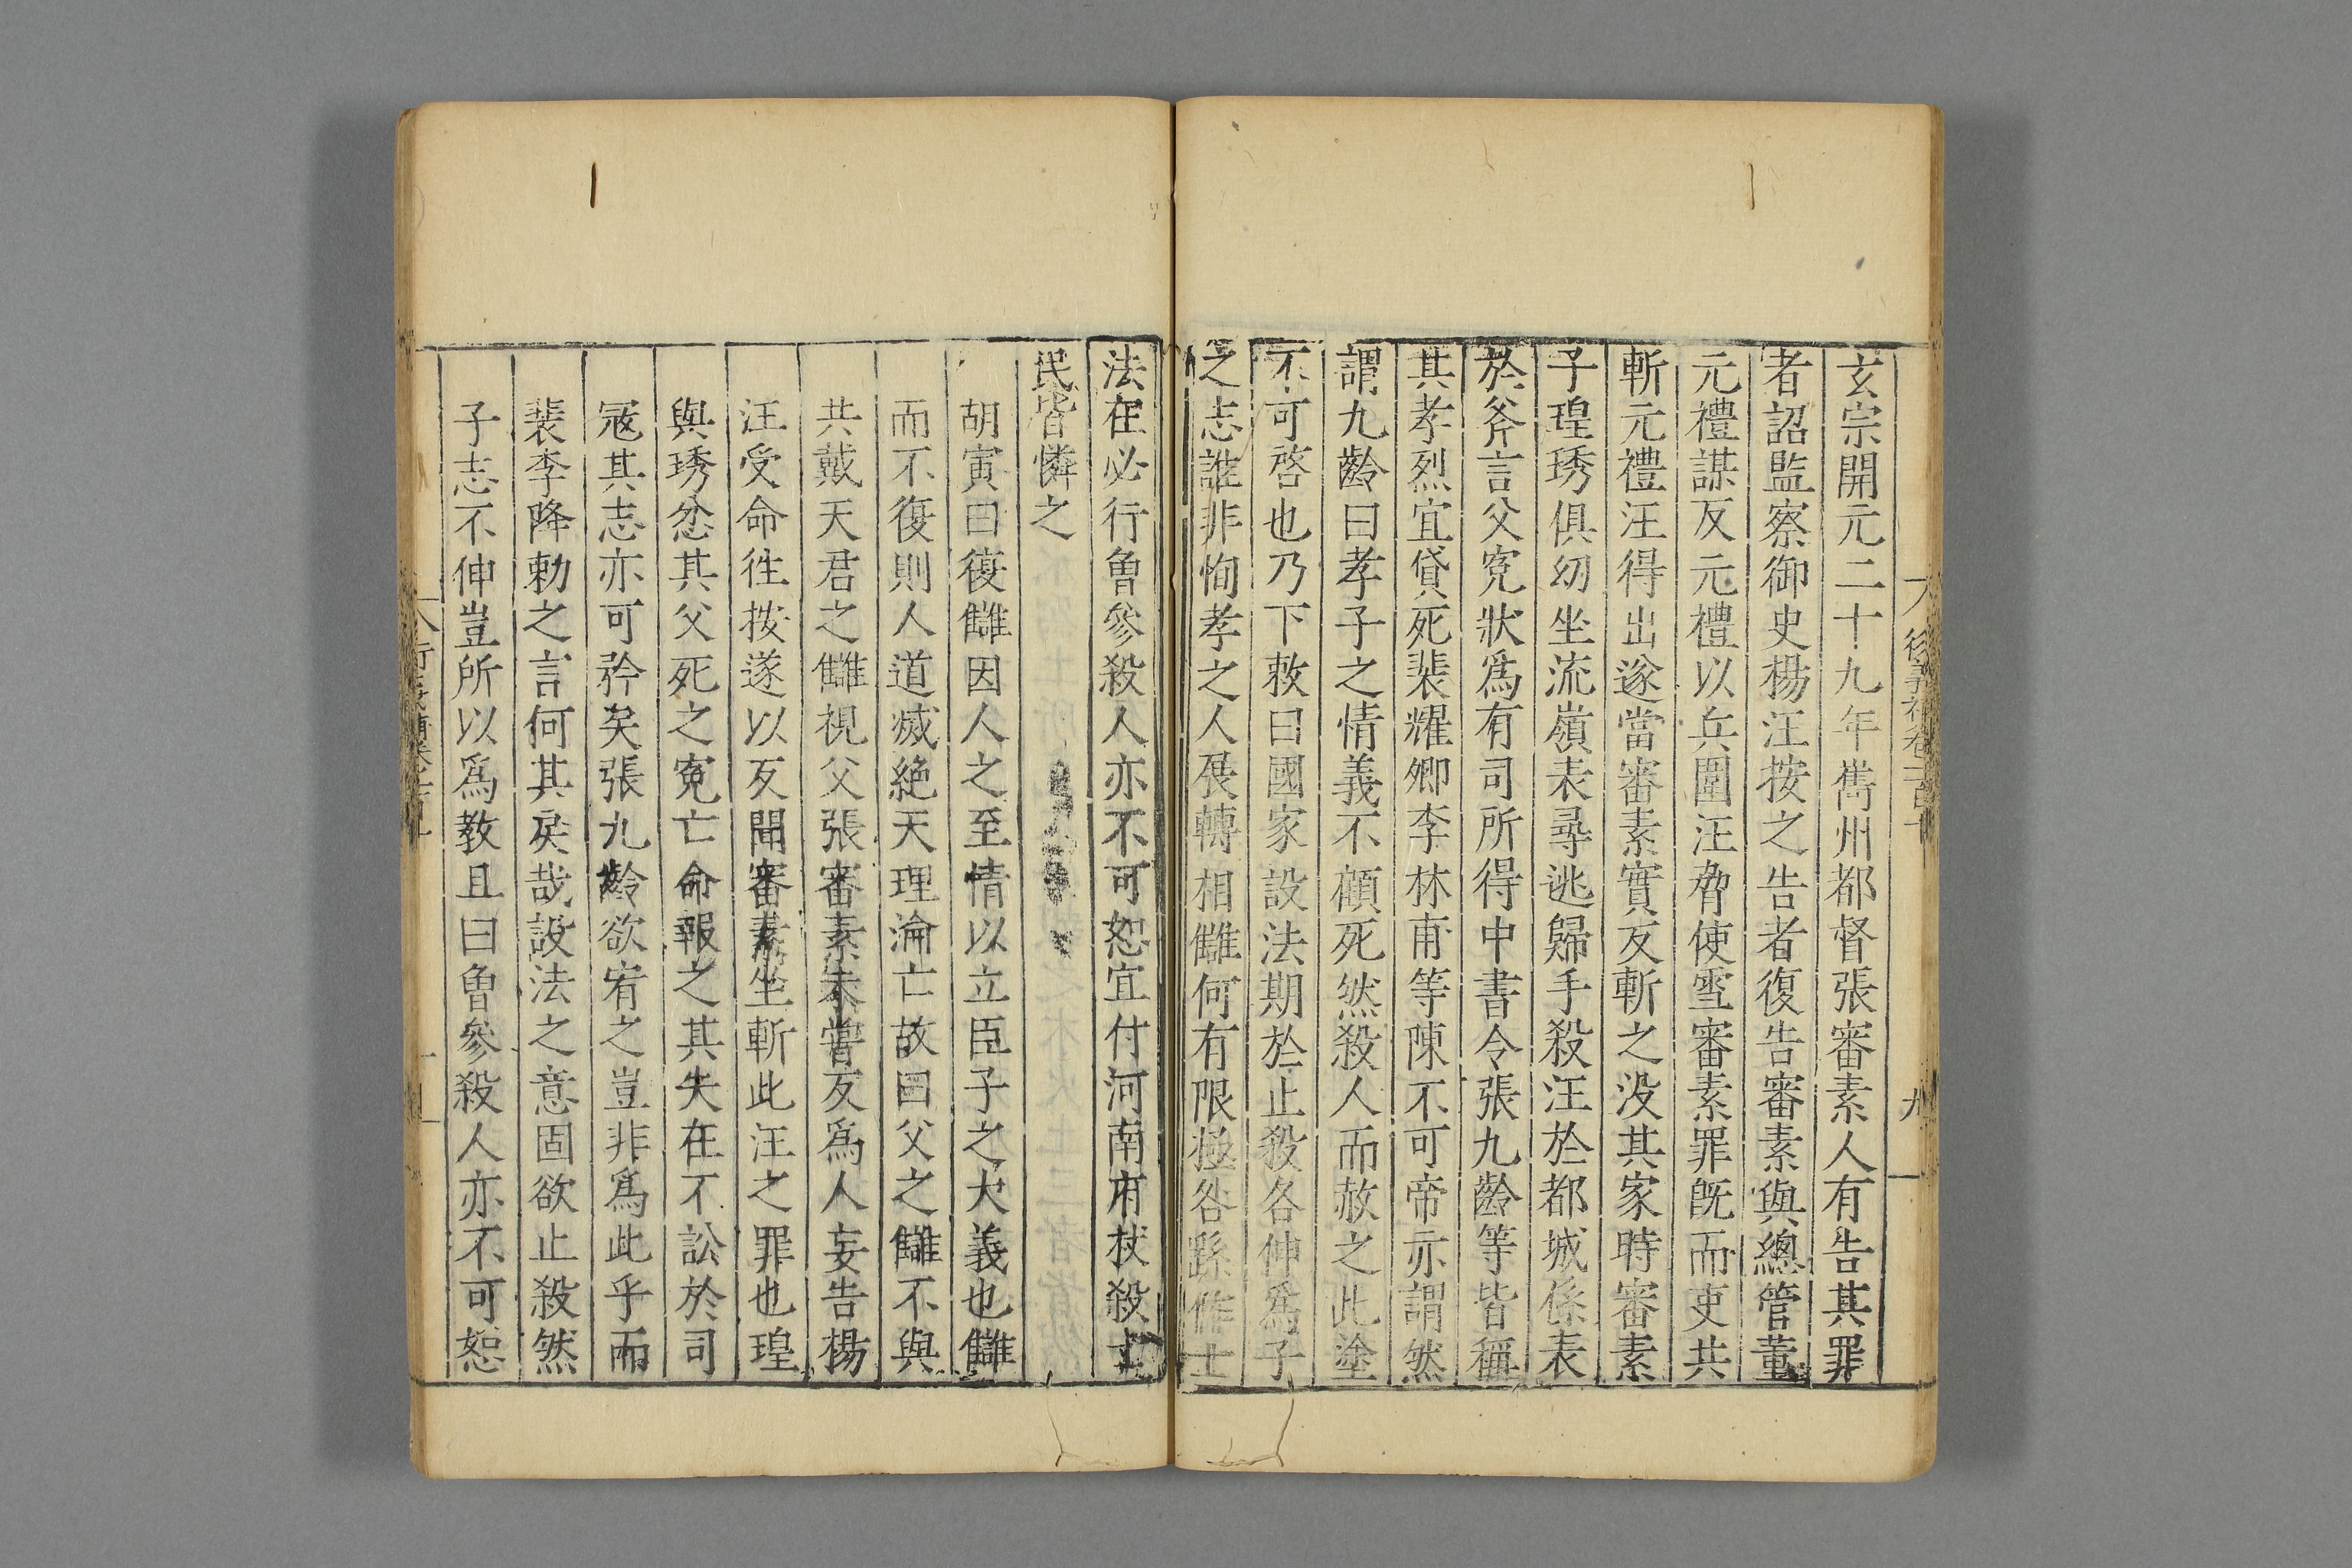 玄宗開元二十九年嶲州都督張審素人有告其罪
者詔監察御史楊汪按之告者復告審素與總管董
元禮謀反元禮以兵圍汪脅使雪審素罪旣而吏共
斬元禮汪得出遂當審素實反斬之没其家時審素
子瑝琇俱幼坐流嶺表尋逃歸手殺汪於都城係表
於斧言父寃狀爲有司所得中書令張九齡等皆稱
其孝烈宜貸死裴耀卿李林甫等陳不可帝亦謂然
謂九齡曰孝子之情義不顧死然殺人而赦之此塗
不可啓也乃下敕曰國家設法期於止殺各伸爲子
之志誰非徇孝之人展轉相讎何有限極咎繇作士
法在必行曾參殺人亦不可恕宜付河南府杖殺士
民皆憐之
胡寅曰復讎因人之至情以立臣子之大義也讎
而不復則人道滅絶天理淪亡故曰父之讎不與
共戴天君之讎視父張審素未嘗反爲人妄告楊
汪受命徃按遂以反聞審素坐斬此汪之罪也瑝
與琇忿其父死之寃亡命報之其失在不訟於司
寇其志亦可矜矣張九齡欲宥之豈非爲此乎而
裴李降勅之言何其戾哉設法之意固欲止殺然
子志不伸豈所以爲教且曰曾參殺人亦不可恕